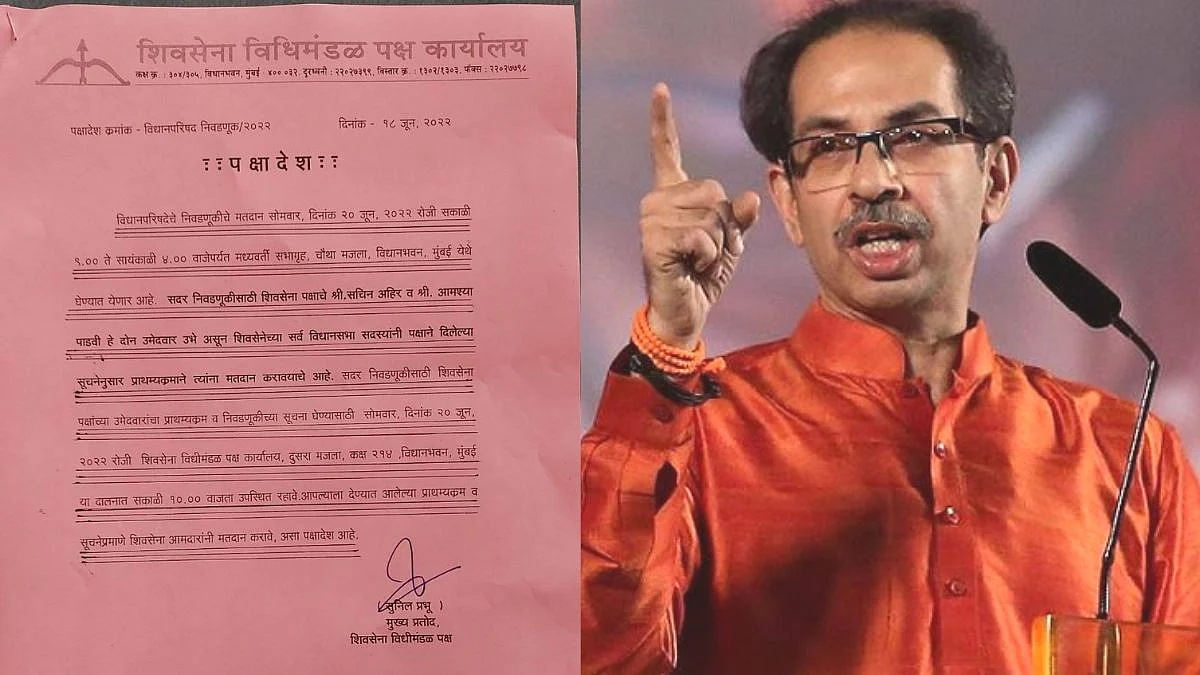 शिवसेना विधिमंडळ पक्ष कार्यालय
कक्ष क्र. : ३०४/३०५, विधानभवन, मुंबई - ४०० ०३२. दुरध्वनी : २२०२७३९९, विस्तार क्र. : १३०२/१३०३, फॅक्स : २२०२७७९८
पक्षादेश क्रमांक - विधानपरिषद निवडणूक/२०२२ दिनांक - १८ जून, २०२२
:: पक्षादेश ::
विधानपरिषदेचे निवडणूकीचे मतदान सोमवार, दिनांक २० जून, २०२२ रोजी सकाळी
९.०० ते सायंकाळी ४.०० वाजेपर्यत मध्यवर्ती सभागृह, चौथा मजला, विधानभवन, मुंबई येथे
घेण्यात येणार आहे. सदर निवडणूकीसाठी शिवसेना पक्षाचे श्री.सचिन अहिर व श्री. आमश्या
पाडवी हे दोन उमेदवार उभे असून शिवसेनेच्या सर्व विधानसभा सदस्यांनी पक्षाने दिलेल्या
सूचनेनुसार प्राथम्यक्रमाने त्यांना मतदान करावयाचे आहे. सदर निवडणूकीसाठी शिवसेना
पक्षांच्या उमेदवारांचा प्राथम्यक्रम व निवडणूकीच्या सूचना घेण्यासाठी सोमवार, दिनांक २० जून,
२०२२ रोजी शिवसेना विधीमंडळ पक्ष कार्यालय, दुसरा मजला, कक्ष २१४ ,विधानभवन, मुंबई
या दालनात सकाळी १०.०० वाजता उपस्थित रहावे.आपल्याला देण्यात आलेल्या प्राथम्यक्रम व
सूचनेप्रमाणे शिवसेना आमदारांनी मतदान करावे, असा पक्षादेश आहे.
(सुनिल प्रभू )
मुख्य प्रतोद,
शिवसेना विधीमंडळ पक्ष